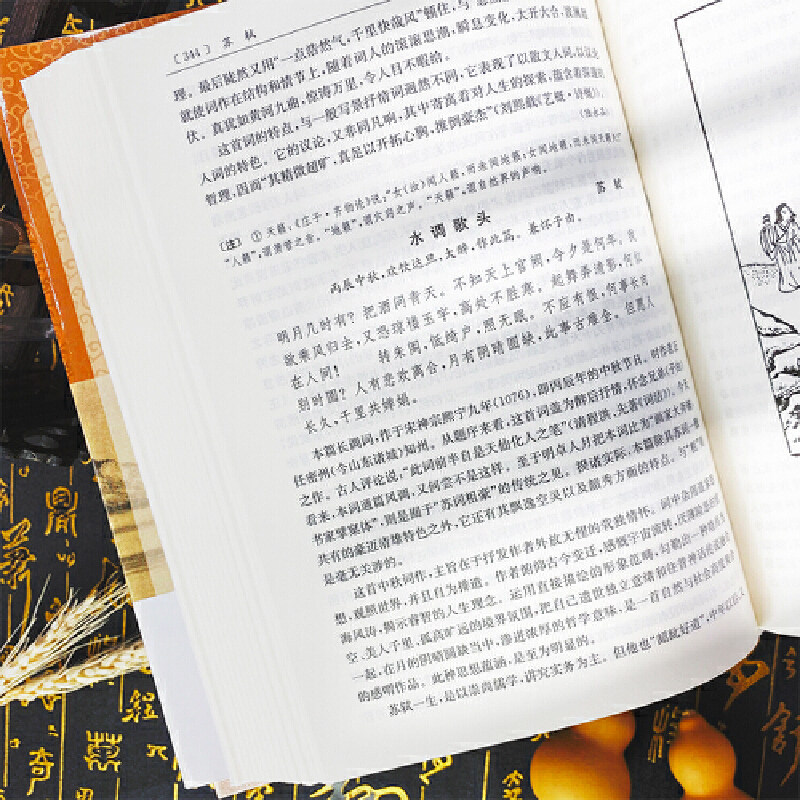 〔344〕 苏 轼
理。最后陡然又用“一点浩然气，千里快哉风”顿住，与
就使词作在结构和情节上，随着词人的滚滚思潮，瞬息变化，大开大合，波澜起
伏。真犹如黄河九曲，惊涛万里，令人目不暇给。
这首词的特点，与一般写景抒情词迥然不同，它表现了以散文入词，以议论
入词的特色。它的议论，又非同凡响，其中寄寓着对人生的探索，蕴含着深邃的
哲理，因而“其精微超旷，真足以开拓心胸，推倒豪杰”（刘熙载《艺概·词概》）。
〔注〕 ① 天籁：《庄子·齐物论》说：“女（汝）闻人籁，而未闻地籁；女闻地籁，而未闻天籁夫！”
“人籁”，谓箫管之音。“地籁”，谓穴窍之声。“天籁”，谓自然界的声响。
水 调 歌 头
苏 轼
丙辰中秋，欢饮达旦，大醉，作此篇。兼怀子由。
明月几时有？把酒问青天。不知天上宫阙，今夕是何年。我
欲乘风归去，又恐琼楼玉宇，高处不胜寒。起舞弄清影，何似
在人间！ 转朱阁，低绮户，照无眠。不应有恨，何事长向
别时圆？人有悲欢离合，月有阴晴圆缺，此事古难全。但愿人
长久，千里共婵娟。
本篇长调词，作于宋神宗熙宁九年（1076），即丙辰年的中秋节日。时作者正
任密州（今山东诸城）知州。从题序来看，这首词盖为醉后抒情，怀念兄弟（子由）
之作。古人评论说，“此词前半自是天仙化人之笔”（清程洪、先著《词洁》）。今天
看来，本词通篇风调，又何尝不是这样。至于明卓人月把本词比为“画家大斧皴，
书家擘窠体”，则是囿于“苏词粗豪”的传统之见。揆诸实际，本篇除具苏词一般
共有的豪迈清雄特色之外，它还有其飘逸空灵以及韶秀方面的特点。与“粗”字
是毫无关涉的。
这首中秋词作，主旨在于抒发作者外放无俚的
想，观照世界，并且自为排遣。作者俯仰古今变迁，感慨宇宙流转，厌薄险恶的宦
海风涛，揭示睿智的人生理念。运用直接描绘的形象范畴，勾勒出一种皓月当
空、美人千里，孤高旷远的境界氛围，把自己遗世独立意绪和往昔神话传说融合
一起，在月的阴晴圆缺当中，渗进浓厚的哲学意味，是一首自然与社会高度契合
的感喟作品。此种思想蕴涵，是至为明显的。
苏轼一生，是以崇尚儒学，讲究实务为主。但他也“龆龀好道”，中年以后，又